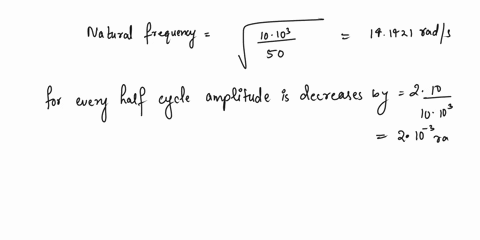 Natural frequency = √(10·10³ / 50) = 14.1421 rad/s
for every half cycle amplitude is decreases by = 2· 10 / 10·10³
= 2·10⁻³ ra